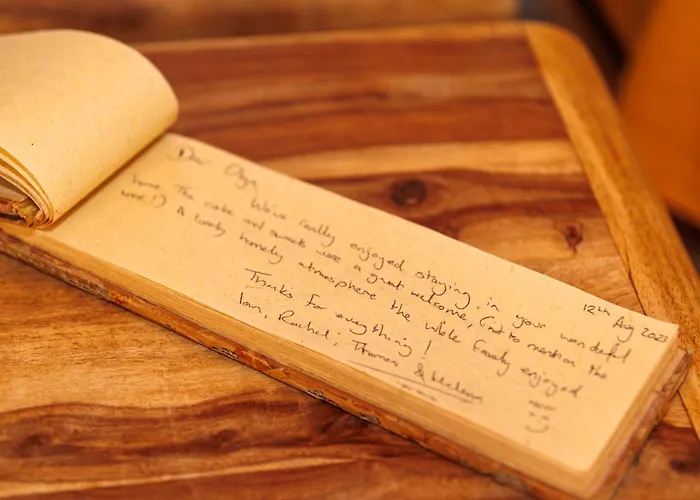 12th Aug 2023
Dear Olga,
We've really enjoyed staying in your wonderful
home. The cake and sweets were a great welcome, (not to mention the
wine!) A lovely homely atmosphere the whole family enjoyed
Thanks for everything!
Iain, Rachel, Thomas &